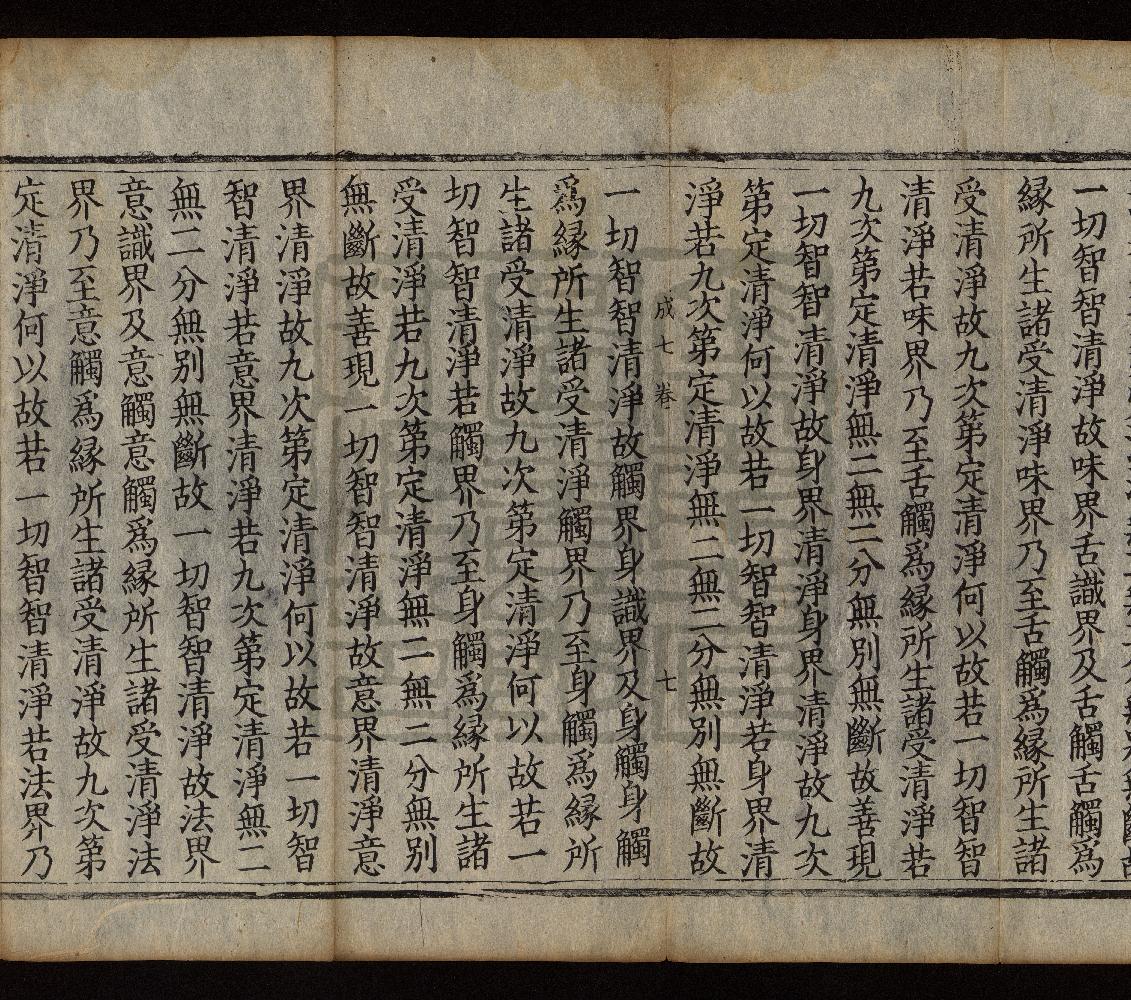 一切智智清淨故味界舌識界及舌觸舌觸爲
緣所生諸受清淨味界乃至舌觸爲緣所生諸
受清淨故九次第定清淨何以故若一切智智
清淨若味界乃至舌觸爲緣所生諸受清淨若
九次第定清淨無二無二分無別無斷故善現
一切智智清淨故身界清淨身界清淨故九次
第定清淨何以故若一切智智清淨若身界清
淨若九次第定清淨無二無二分無別無斷故
成七卷 七
一切智智清淨故觸界身識界及身觸身觸
爲緣所生諸受清淨觸界乃至身觸爲緣所
生諸受清淨故九次第定清淨何以故若一
切智智清淨若觸界乃至身觸爲緣所生諸
受清淨若九次第定清淨無二無二分無別
無斷故善現一切智智清淨故意界清淨意
界清淨故九次第定清淨何以故若一切智
智清淨若意界清淨若九次第定清淨無二
無二分無別無斷故一切智智清淨故法界
意識界及意觸意觸爲緣所生諸受清淨法
界乃至意觸爲緣所生諸受清淨故九次第
定清淨何以故若一切智智清淨若法界乃